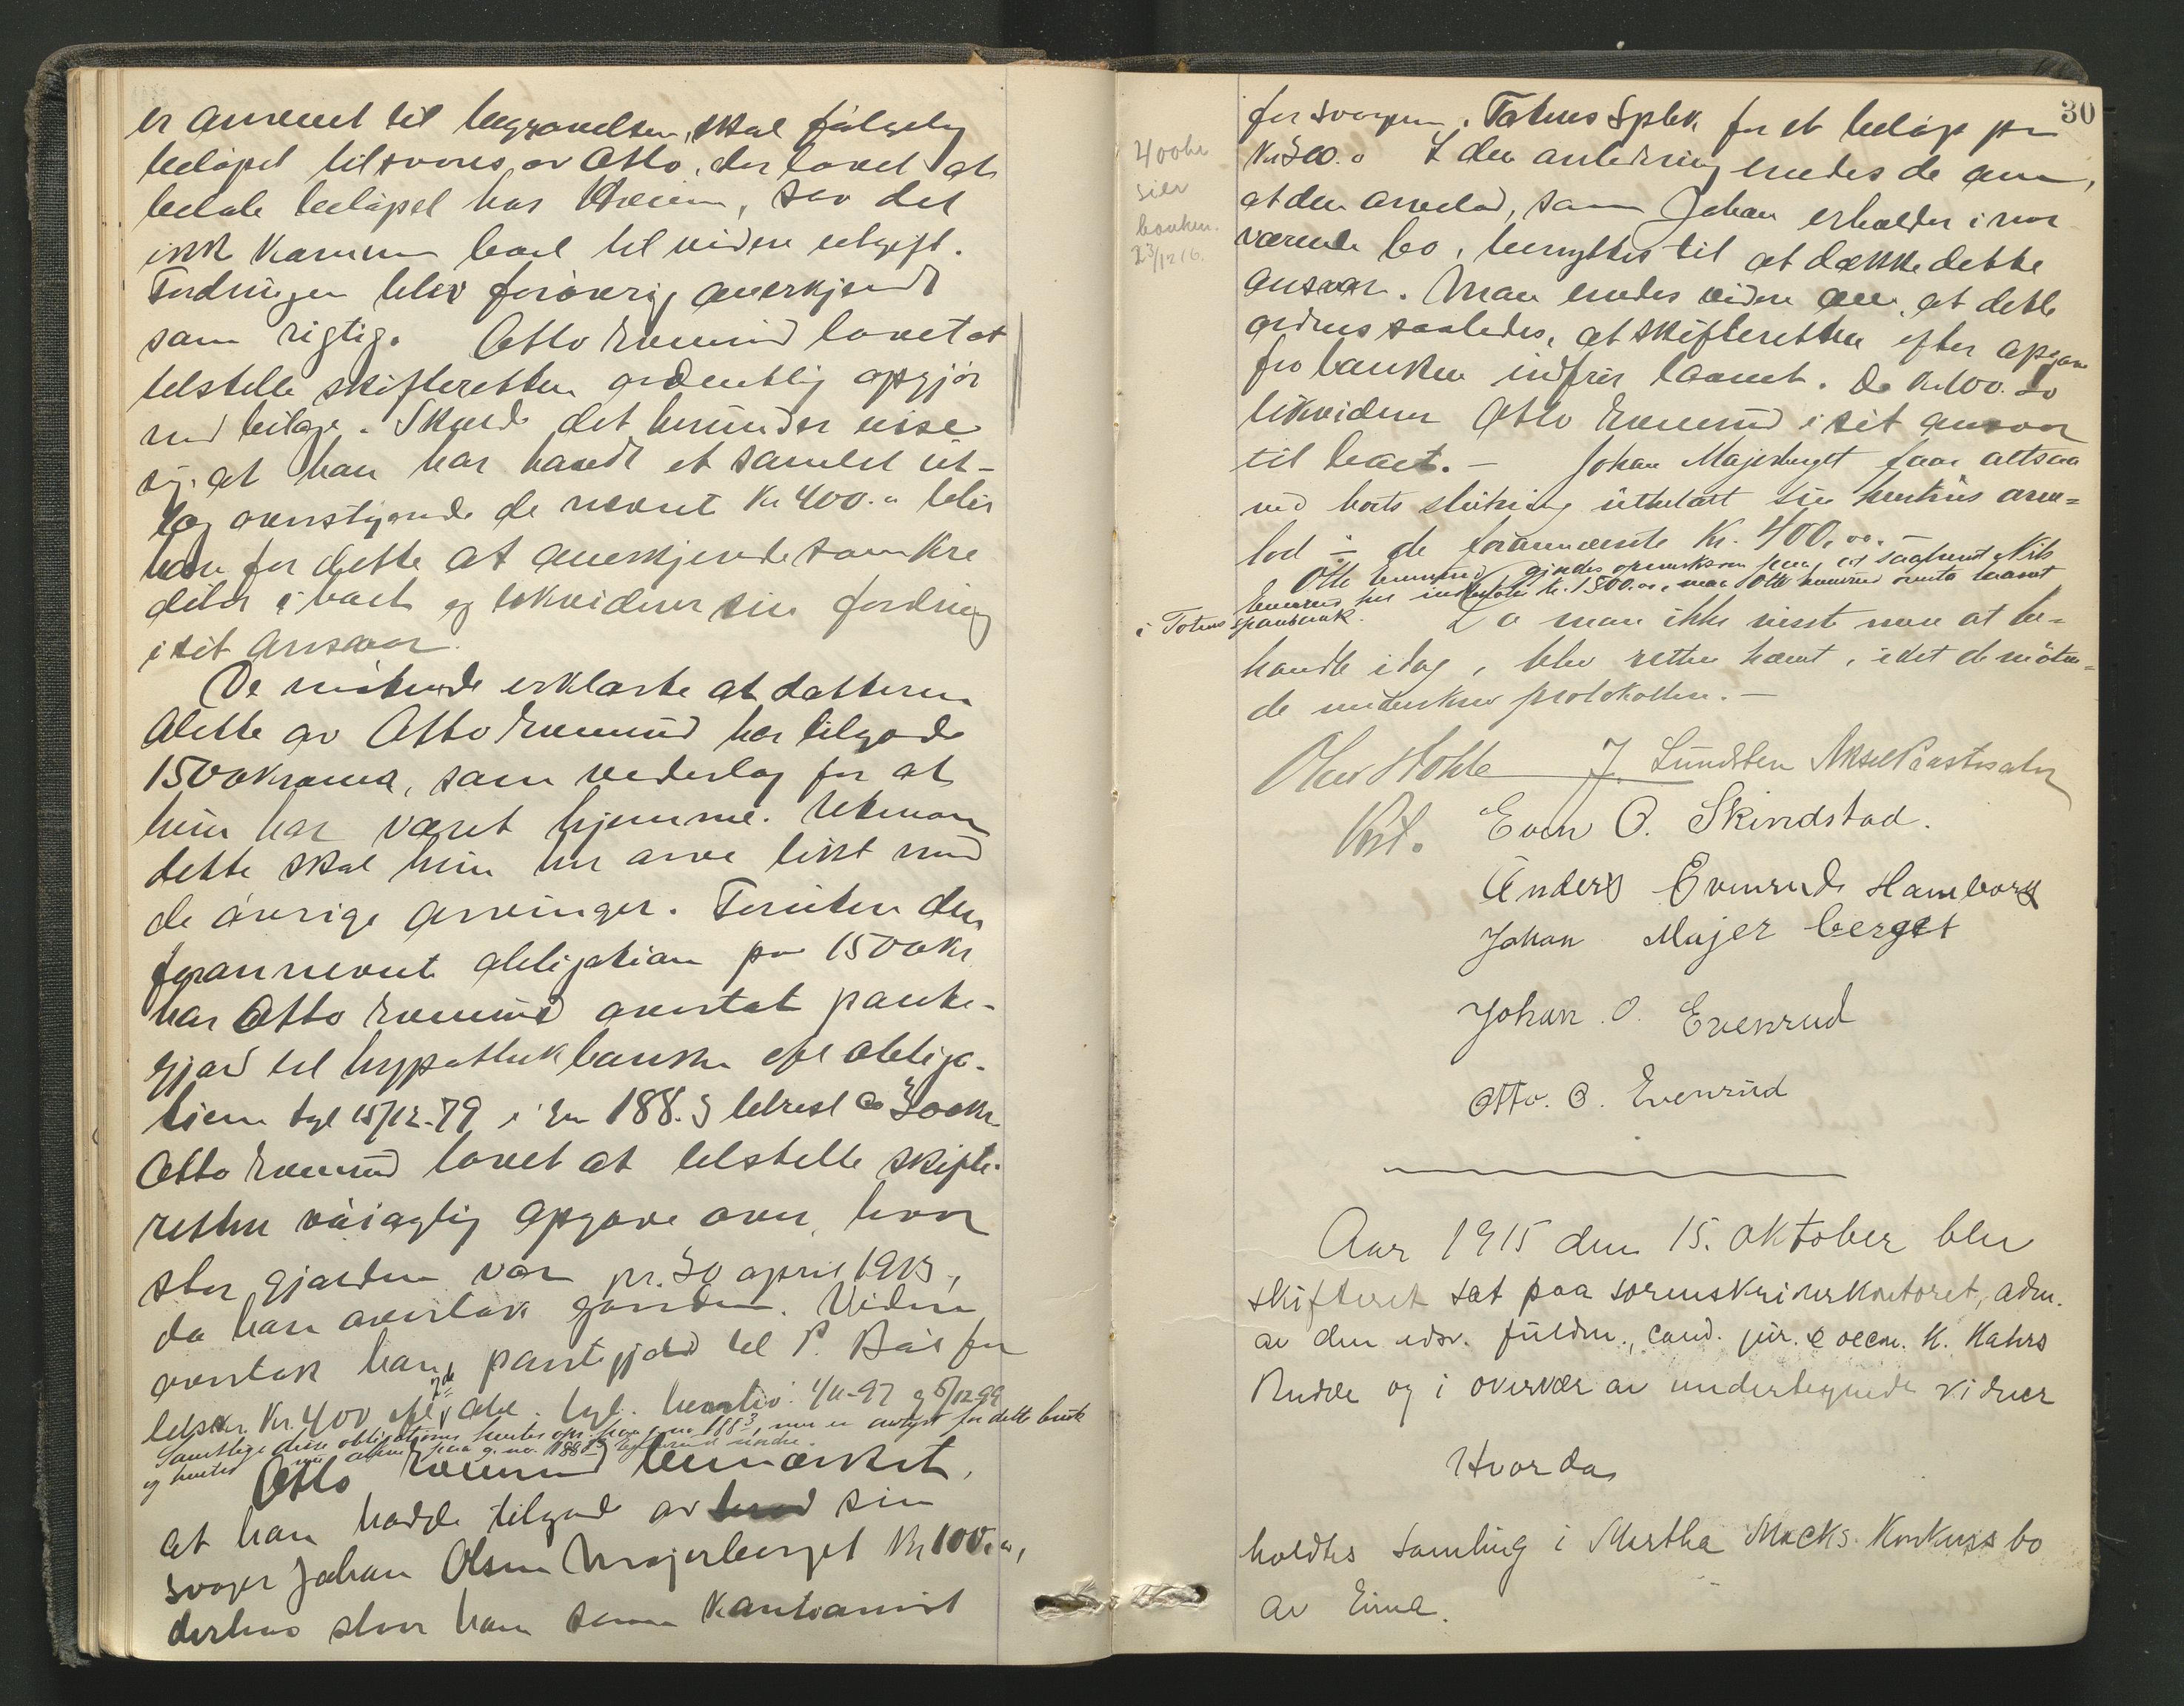 er anvent til begravelsen, skal følgelig
beløpet tilsvares av Otto, der lovet at
betale beløpet hos , saa det
ikke kommer boet til videre utgift.
Fordringen blev forøvrig anerkjendt
som rigtig. Otto Evenrud lovet at
tilstille skifteretten ordentlig opgjør
med bilage. Skulde det herunder vise
sig, at han har havdt et samlet ut-
læg overstigende de nævnte Kr 400.- blir
han for dette at anerkjende som kre
ditor i boet og likviderer sin fordring
i sit ansvar.
De møtende erklærte at datteren
Alette av Otto Evenrud har tilgode
1500 kroner, som vederlag for at
hun har været hjemme. Utenom
dette skal hun her arve likt med
de øvrige arvinger. Foruten den
forannevnte obligation paa 1500 kr
har Otto Evenrud overtat pante-
gjæld til hypothekbanken efl obliga-
tion tgl 15/12-79 i Gn 188.3 tilrest ca 300 kr
Otto Evenrud lovet at tilstille skifte-
retten nøiagtig opgave over, hvor
stor gjælden var pr. 30 april 1913,
da han overtok gaarden. Videre
overtok han pantegjæld til P. for
tilsam. Kr. 400 efl 2de obl. tgl. henholdsv. 1/11-97 og 5/12-99
Samtlige disse obligationer heftes opr. paa g.no 188 3, men er avløst for dette bruk
og heftes nu alene paa g. no. 188 undre.
Otto Evenrud bemerket,
at han hadde tilgode av sin
svoger Johan Olsen Majerberget Kr 100.-,
derhos staar han som kautionist
30
400 kr
sier
banken.
23/12 16.
for svogeren i Totens Spbk. for et beløp paa
Kr 300.- I den anledning enedes de om,
at den arvelod, som Johan erholder i nær
værende bo, benyttes til at dække dette
ansvar. Man enedes videre om, at dette
ordnes saaledes, at skifteretten efter opgave
fra banken indfrir laanet. De Kr 100.00
likviderer Otto Evenrud i sit ansvar
til boet. – Johan Majerberget faar altsaa
ved boets slutning utbetalt sin hustrus arve-
lod ÷ de forannævnte Kr. 400.00. –
Otto Evenrud gjordes opmerksom paa, at saafremt Nils
Evenrud har kr. 1500.00, maa Otto Evenrud overta laanet
i Totens sparebank.
Da man ikke visste mere at be-
handle idag, blev retten hævet, idet de møten-
de underskrev protokollen. –
J. Lundsten Aksel
Vit. Even O. Skindstad.
Anders Evenrud Hamborg
Johan Majer berget
Johan O. Evenrud
Otto. O. Evenrud
Aar 1915 den 15. oktober blev
skifteret sat paa sorenskriverkontoret, adm.
av den edsv. fuldm., cand. jur. & oecon. K. Kahrs
og i overvær av undertegnede vidner
Hvorda
holdtes samling i Martha Mæcks Konkurs bo
av Eina.